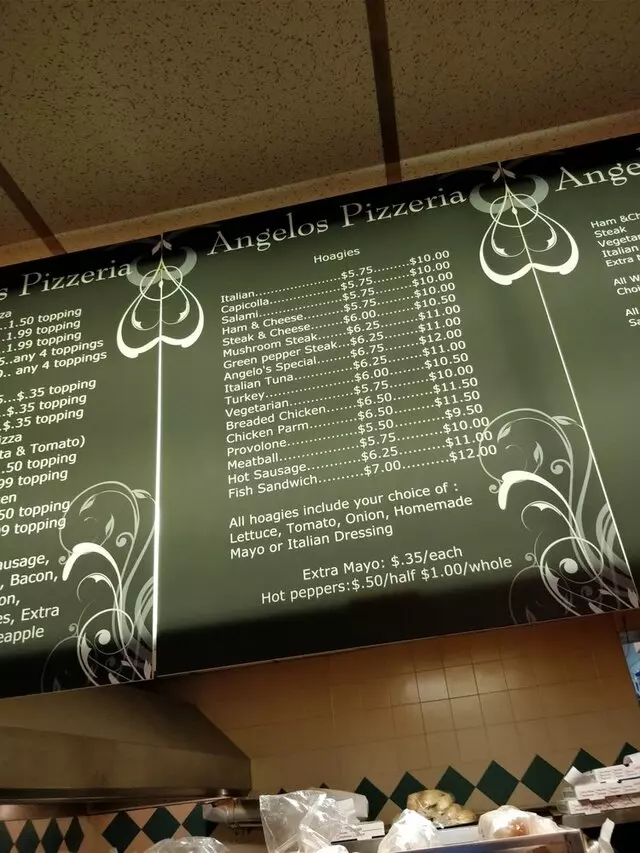 s Pizzeria
za
..1.50 topping
..1.99 topping
..1.99 topping
5..any 4 toppings
.. any 4 toppings
5...$.35 topping
..$.35 topping
..$.35 topping
izza
ta & Tomato)
.50 topping
99 topping
en
50 topping
99 topping
ausage,
, Bacon,
on,
es, Extra
eapple
Angelos Pizzeria
Hoagies
Italian.....................$5.75..........$10.00
Capicolla.................$5.75..........$10.00
Salami....................$5.75..........$10.00
Ham & Cheese.......$5.75..........$10.00
Steak & Cheese......$6.00..........$10.50
Mushroom Steak...$6.25..........$11.00
Green pepper Steak..$6.25..........$11.00
Angelo's Special.....$6.75..........$12.00
Italian Tuna............$6.25..........$11.00
Turkey...................$6.00..........$10.50
Vegetarian.............$5.75..........$10.00
Breaded Chicken....$6.50..........$11.50
Chicken Parm........$6.50..........$11.50
Provolone..............$5.50..........$9.50
Meatball................$5.75..........$10.00
Hot Sausage..........$6.25..........$11.00
Fish Sandwich........$7.00..........$12.00
All hoagies include your choice of :
Lettuce, Tomato, Onion, Homemade
Mayo or Italian Dressing
Extra Mayo: $.35/each
Hot peppers:$.50/half $1.00/whole
Ange
Ham &C
Steak
Vegetar
Italian
Extra
All W
Choi
All
Sa